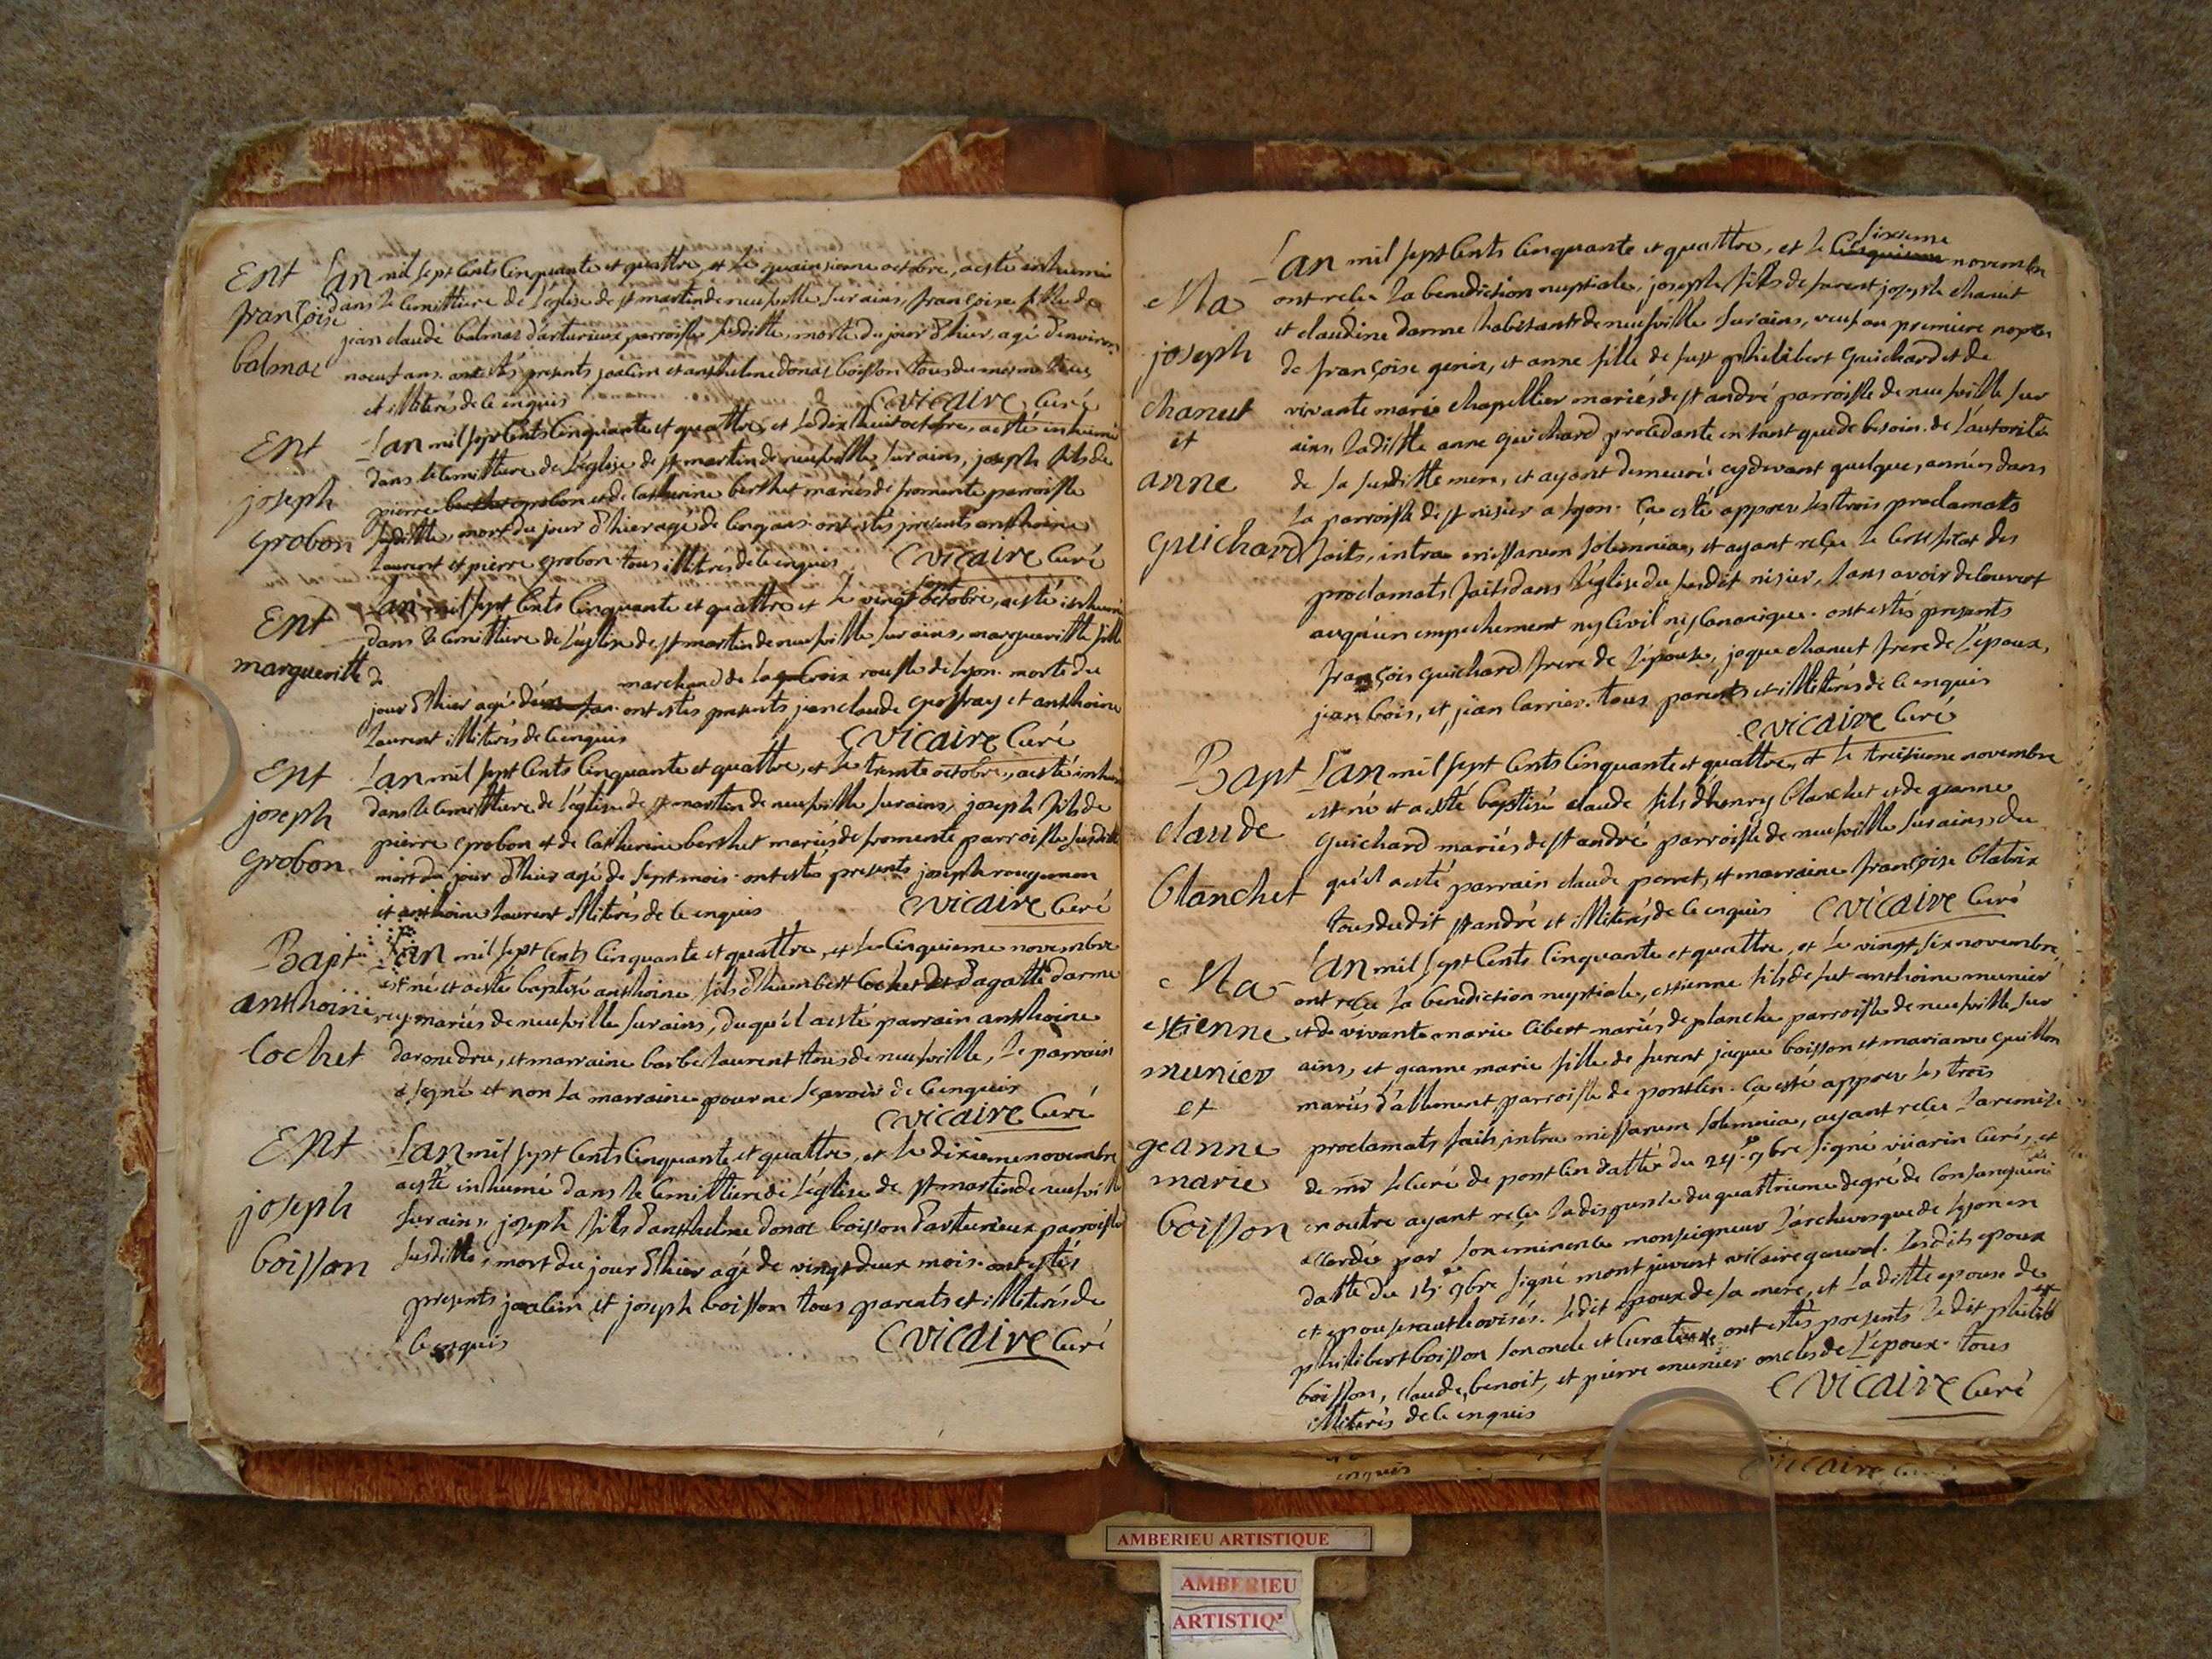 Ent
françoise
balmac
L'an mil sept Cents Cinquante et quattre, et le quainsieme octobre, a esté inhumé
dans le Cemittiere de l'église de st martin de neufville sur ains, françoise fille de
jean claude balmac d'arturieux parroisse susditte, morte du jour d'hier, agé d'environ
noeuf ans. ont estés presents joachim et anthelme donat boisson tous du mesme lieu,
et illiterés de ce enquis Cvicaire Curé
Ent
joseph
grobon
L'an mil sept Cents Cinquante et quattre, et le dix huit octobre, a esté inhumé
dans le Cemittiere de l'église de st martin de neufville sur ains, joseph fils de
pierre grobon et de Catherine berthet mariés de fromente parroisse
susditte, mort du jour d'hier agé de Cinq ans. ont estés presents anthoine
Laurent et pierre grobon tous illiterés de ce enquis Cvicaire Curé
Ent
margueritte
L'an mil sept Cents Cinquante et quattre et le vingt sept octobre, a esté inhumé
dans le Cemittiere de l'église de st martin de neufville sur ains, margueritte fille
de marchand de la Croix rousse de Lyon. morte du
jour d'hier agé ont estés presents jean claude goiffray et anthoine
Laurent illiterés de ce enquis Cvicaire Curé
Ent
joseph
grobon
L'an mil sept Cents Cinquante et quattre, et le trente octobre, a esté inhumé
dans le Cemittiere de l'église de st martin de neufville sur ains, joseph fils de
pierre grobon et de Catherine berthet mariés de fromente parroisse susditte
mort du jour d'hier agé de sept mois. ont estés presents joseph rougemon
et anthoine Laurent illiterés de ce enquis Cvicaire Curé
Bapt
anthoine
Cochet
L'an mil sept Cents Cinquante et quattre, et le Cinquieme novembre
est né et a esté baptisé anthoine fils d'humbert Cochet et d'agatte darme
mariés de neufville sur ains, duqu'el a esté parrain anthoine
darmedru, et marraine barbe Laurent tous de neufville, le parrain
a signé et non la marraine pour ne sçavoir de Cenquis
Cvicaire Curé
Ent
joseph
boisson
L'an mil sept Cents Cinquante et quattre, et le dixieme novembre
a esté inhumé dans le Cemittiere de l'église de st martin de neufville
sur ains, joseph fils d'anthelme donat boisson d'arturieux parroisse
susditte, mort du jour d'hier agé de vingt deux mois. ont estés
presents joachim et joseph boisson tous parents et illiterés de
Cenquis Cvicaire Curé
Ma
joseph
chanut
et
anne
guichard
L'an mil sept Cents Cinquante et quattre, et le sixieme novembre
ont reçu la benediction nuptiale, joseph fils de furent joseph chanut
et claudine darme habitants de neufville sur ains, veuf en premiere nopces
de françoise genin, et anne fille de fust philibert guichard et de
vivante marie chapellier mariés de st andré parroisse de neufville sur
ains, laditte anne guichard procedante en tant que de besoin de l'autorité
de sa susditte mere, et ayant demeuré cydevant quelque, années dans
la parroisse de st nisier a Lyon. Ça esté appres les trois proclamats
faits, intra missarum solemnia, et ayant reçu le Certificat des
proclamats faits dans l'église du susdit nisier, sans avoir decouvert
auqu'un empechement ny Civil ny Canonique. ont estés presents
françois guichard frere de l'épouse, jaque chanut frere de l'époux,
jean bois, et jean Carrier. tous parents et illiterés de ce enquis
Cvicaire Curé
Bapt
claude
blanchet
L'an mil sept Cents Cinquante et quattre, et le treisieme novembre
est né et a esté baptisé claude fils d'henry blanchet et de geanne
guichard mariés de st andré parroisse de neufville sur ains, du
qu'el a esté parrain claude perret, et marraine françoise blatrix
tous dudit st andré et illiterés de ce enquis Cvicaire Curé
Ma
estienne
munier
et
geanne
marie
boisson
L'an mil sept Cents Cinquante et quattre, et le vingt six novembre,
ont reçu la benediction nuptiale, estienne fils de fut anthoine munier
et de vivante marie libert mariés de planche parroisse de neufville sur
ains, et geanne marie fille de furent jaque boisson et marianne guillon
mariés d'allement, parroisse de pontcin. Ça esté appres les trois
proclamats faits, intra missarum solemnia, ayant reçu la remise
de mr le Curé de pontcin datté du 24e 9bre signé Curé, et
en outre ayant reçu la dispense du quattrieme degré de consanguinité
accordée par son eminence monseigneur l'archevesque de Lyon en
datte du 15e 9bre signé mont juvent vicaire general. Lesdits epoux
et epouse authorisés. Ledit epoux de sa mere, et la ditte epouse de
philibert boisson son oncle et Curateur, ont estés presents le dit philibert
boisson, claude, benoit, et pierre munier oncles de l'époux. tous
illiterés de ce enquis Cvicaire Curé
enquis Cvicaire Curé
AMBERIEU ARTISTIQUE
AMBERIEU
ARTISTIQ